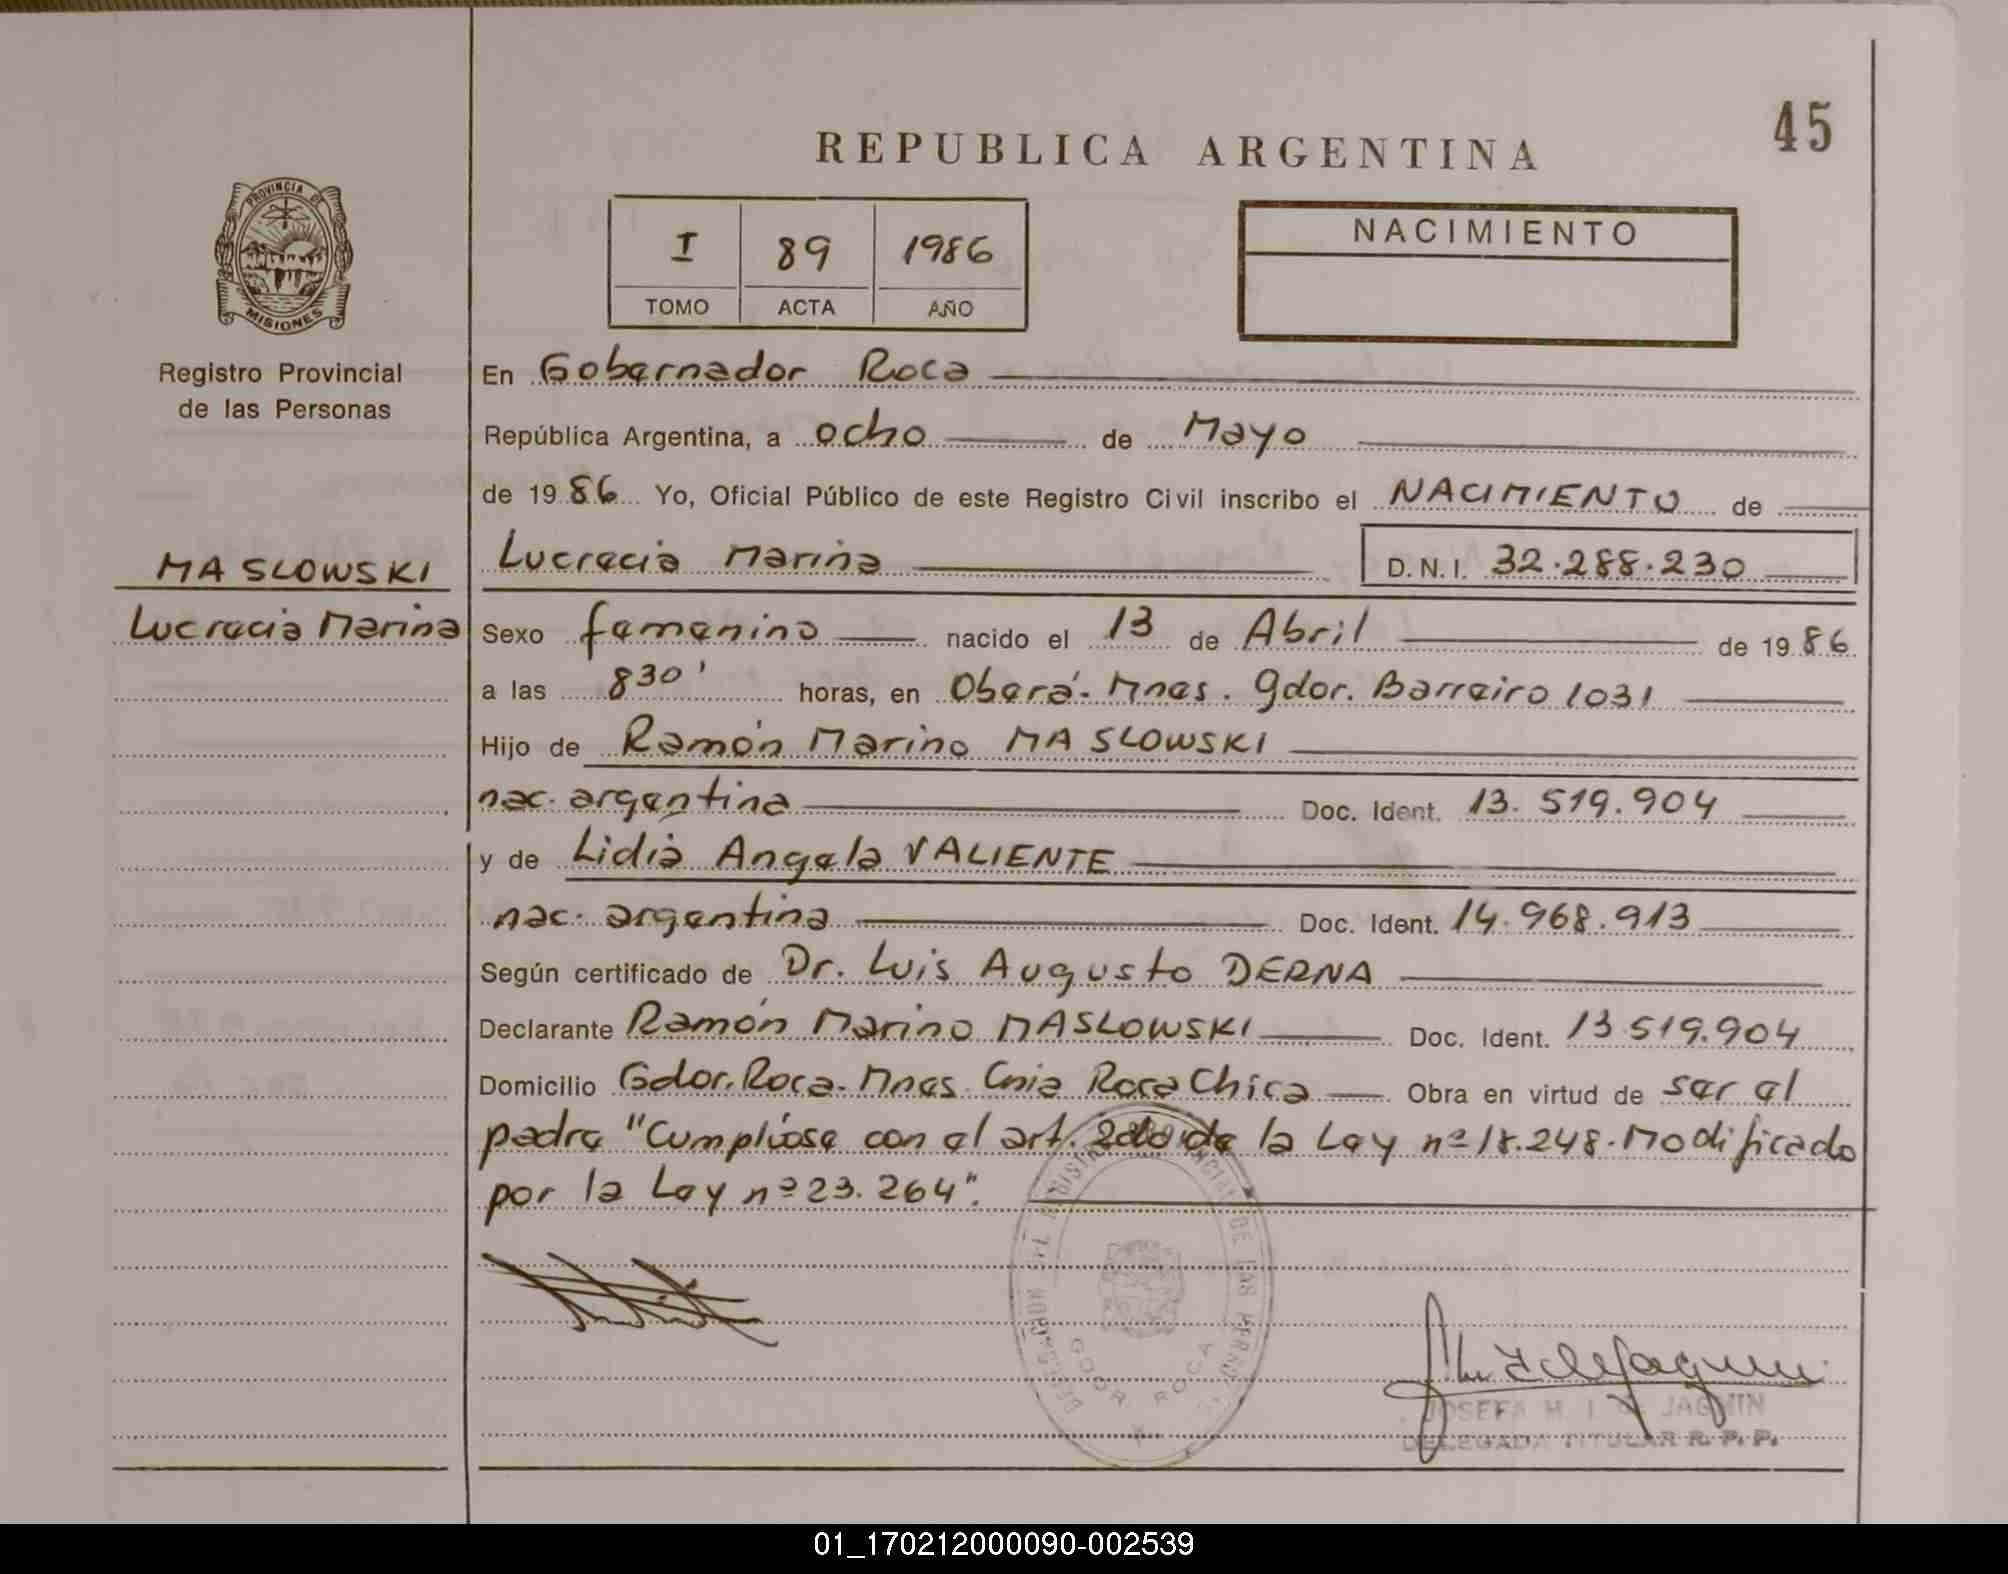 45
REPUBLICA ARGENTINA
I 89 1986
TOMO ACTA AÑO
NACIMIENTO
PROVINCIA DE
MISIONES
Registro Provincial
de las Personas
MASLOWSKI
Lucrecia Marina
En Gobernador Roca
República Argentina, a ocho de Mayo
de 1986 Yo, Oficial Público de este Registro Civil inscribo el NACIMIENTO de
Lucrecia Marina D.N.I. 32.288.230
Sexo femenino nacido el 13 de Abril de 1986
a las 830' horas, en Oberá- Mnes. Gdor. Barreiro 1031
Hijo de Ramón Marino MASLOWSKI
nac. argentina Doc. Ident. 13.519.904
y de Lidia Angela VALIENTE
nac. argentina Doc. Ident. 14.968.913
Según certificado de Dr. Luis Augusto DERNA
Declarante Ramón Marino MASLOWSKI Doc. Ident. 13519.904
Domicilio Gdor. Roca- Mnes. Cnia Roca Chica Obra en virtud de ser el
padre "Cumplióse con el art. 2do de la Ley nº 18.248. Modificado
por la Ley nº 23.264".
REGISTRO PROVINCIAL DE LAS PERSONAS
GDOR ROCA
JOSEFA M. I. JAGMIN
DELEGADA TITULAR R. P. P.
01_170212000090-002539